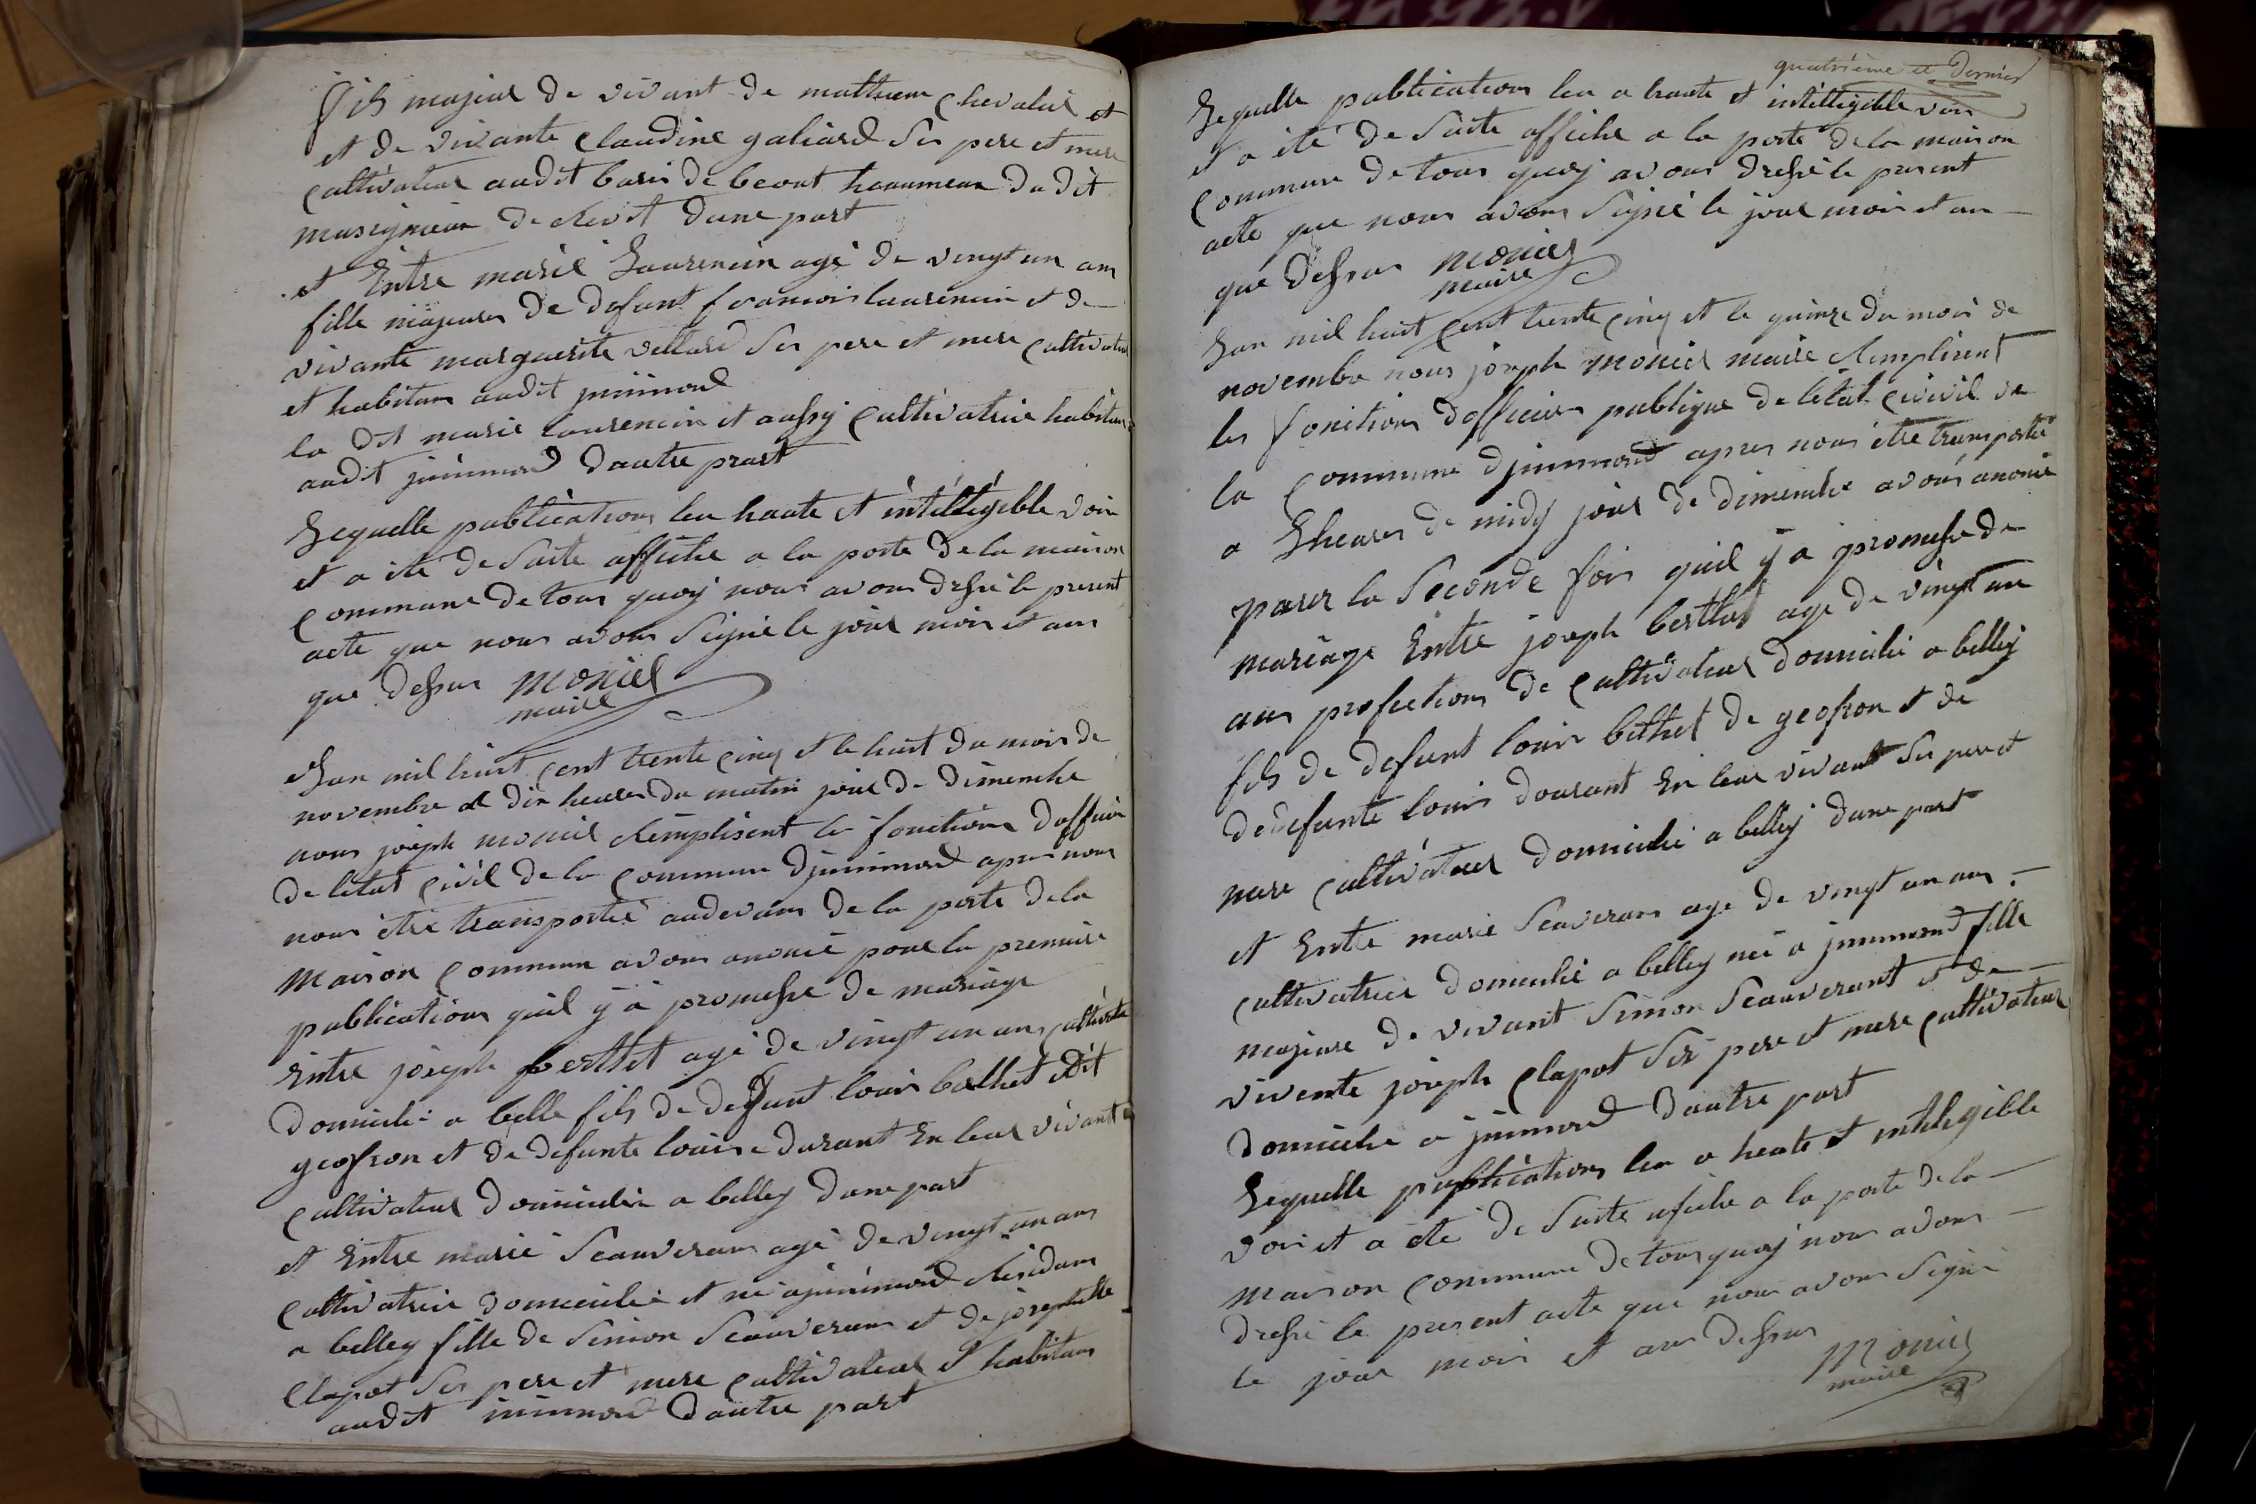 fils majeur de vivant de mathieu chevalié et
et de vivante claudine galiard Ses pere et mere
Cultivateur audit
de d'une part
et Entre marie Laurencin agé de vingt un ans
fille majeure de defunt francois laurencin et de
vivante marguerite Ses pere et mere Cultivateur
et habitans audit jnnimond
la dit marie laurencin et aussy Cultivatrice habitan
audit jnnimond dautre prart
Lequelle publications leu haute et intéllegible voix
et a eté de Suite affiche a la porte de la maison
Commune de tous quoy nous avons dressé le present
acte que nous avons Signé le jour mois et ans
que dessus Moniel
maire
Lan mil huit cent trente cinq et le huit du mois de
novembre a dix heures du matin jour de dimenche
nous joseph moniel Remplisent les fonctions dofficier
de letat civil de la Commune djnnimond apres nous
nous etre transporté audevans de la porte de la
Maison Commune avons anoncé pour la premiere
publications quil y a promesse de mariage
Entre joseph berthet agé de vingt un ans cultivate
domicilié a belle fils de defunt louis balthet dit
geofron et de defunte louise durant En leur vivant
Cultivateur domicilié a belley dune part
et Entre marie Seauverans agé de vingt un ans
Cultivatrice domicilié et né ajnnimond Residans
a belley fille de Simon Seauverans et de josephette
Clapot Ses pere et mere Cultivateur et habitans
audit jnnimond dautre part
quatrième et dernier
Lequelle publications leu a haute et intélligible voix
et a eté de Suite affiche a la porte de la maison
Commune de tous quoy avons dressé le present
acte que nous avons Signé le jour mois et an
que dessus Moniel
maire
Lan mil huit cent trente cinq et le quinze du mois de
novembre nous joseph Moniel maire Remplisent
les fonitions dofficier publique de letat civivil de
la Commune djnnimond apres nous etre transporté
a heures de midy jour de dimenche avons anoncé
pour la Seconde fois quil y a promesse de
mariage Entre joseph berthet age de vingt un
ans profections de Cultivateur domicilié a belley
fils de defunt louis bethet de geofron et de
dedefunte louis dourant En leur vivant Ses pere et
mere Cultivateur domicilié a belley dune part
et Entre marie Seauverans age de vingt un ans
Cultivatrice domicilié a belley né a jnnimond fille
majeure de vivant Simon Seauverant et de
vivente joseph Clapot Ses pere et mere Cultivateur
domicilié a jnnimond dautre part
Lequelle publications leu a heute et intelegible
voix et a eté de Suite afiche a la porte de la
maison Commune de tous quoy nous avons
dressé le present acte que nous avons Signé
le jour mois et ans dessus Moniel
maire